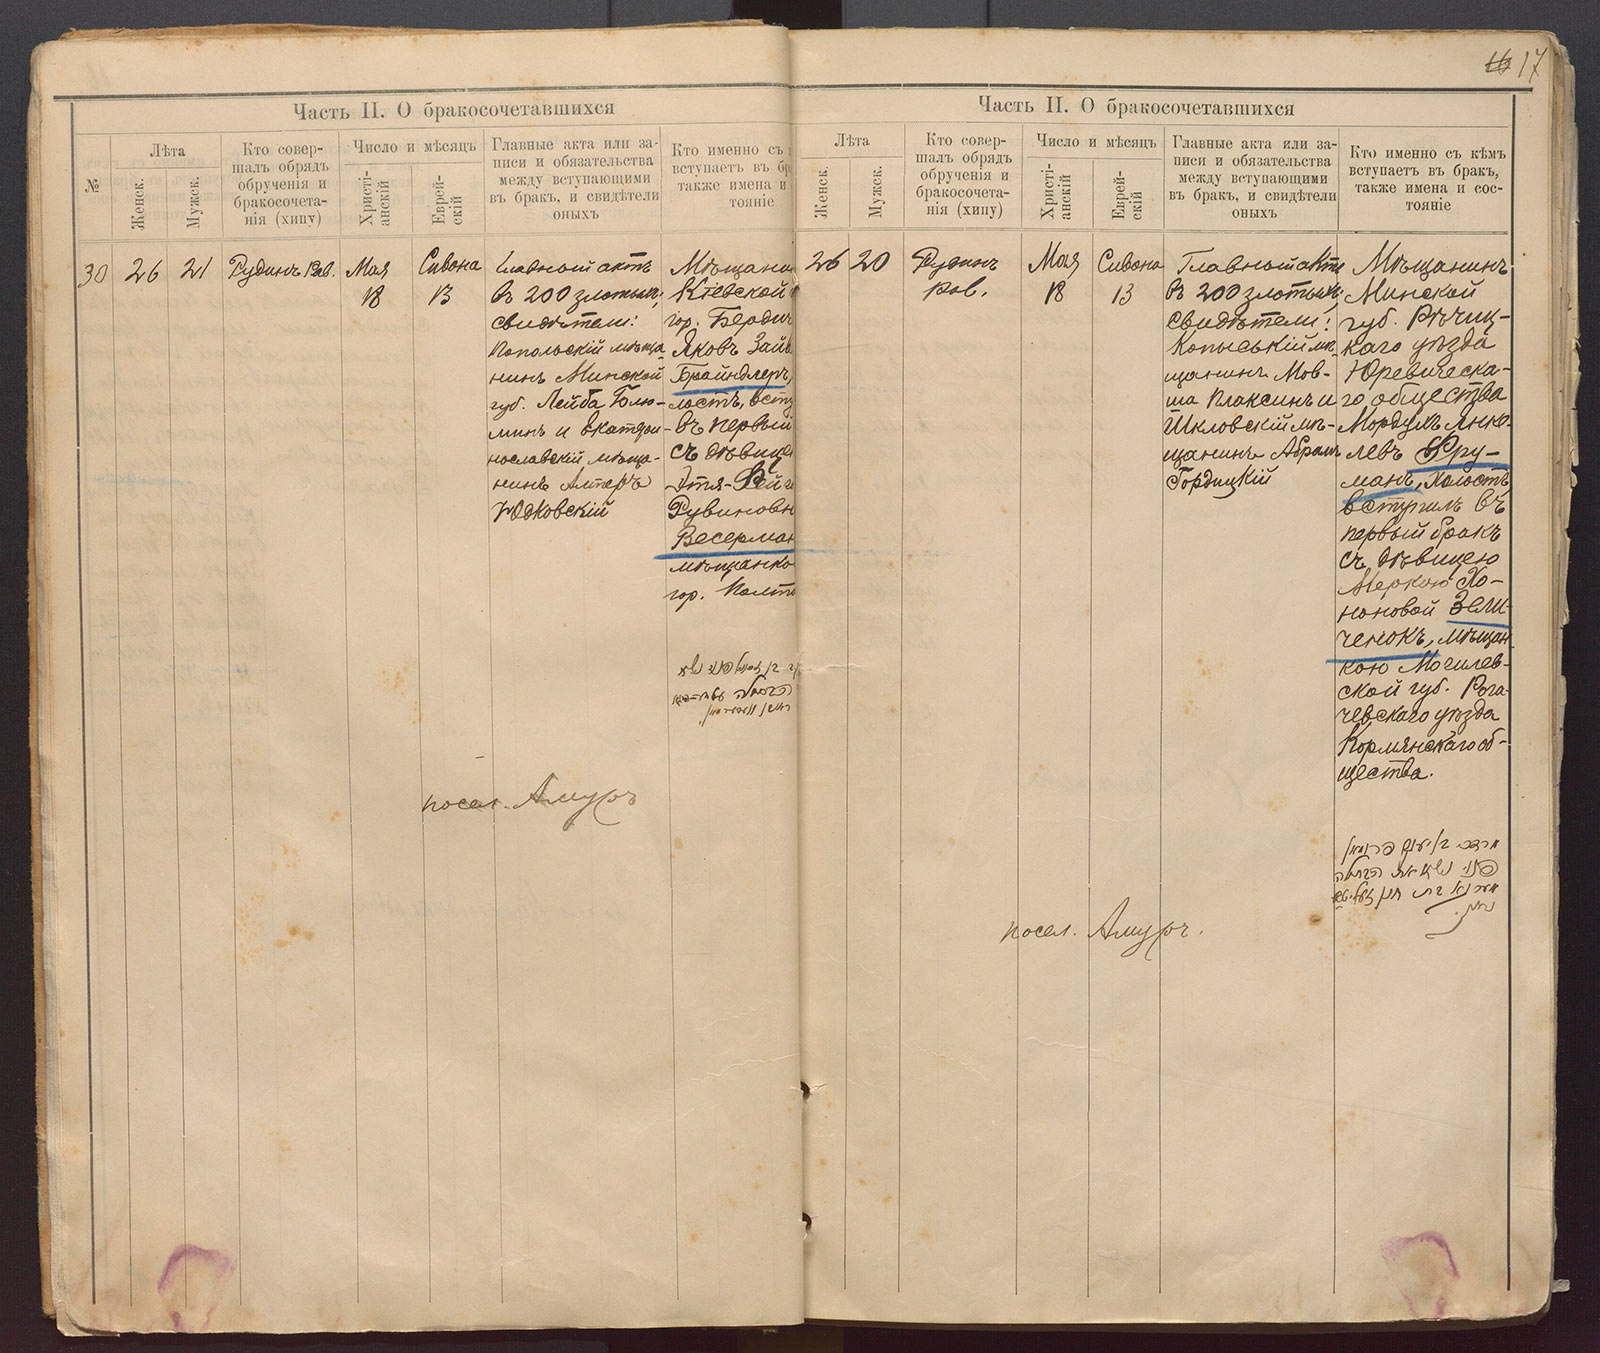 16 17
Часть II. О бракосочетавшихся
№
Лѣта
Женск.
Мужск.
Кто совер-
шалъ обрядъ
обрученія и
бракосочета-
нія (хипу)
Число и мѣсяцъ
Христі-
анскій
Еврей-
скій
Главные акта или за-
писи и обязательства
между вступающими
въ бракъ, и свидѣтели
оныхъ
Кто именно съ
вступаетъ въ бр
также имена и
тояніе
30
26
21
Рудинъ Рав.
Мая
18
Сивона
13
Главный актъ
въ 200 злотыхъ;
свидѣтели:
Копольскій мѣща-
нинъ Минской
губ. Лейба Блю-
минъ и Екатери-
нославскій мѣща-
нинъ Алтеръ
Юдковскій
Мѣщани
Кіевской
гор. Бердич
Яковъ Зайв
Брайндлеръ,
лостъ, вступ
въ первый
съ дѣвице
Этя-Рейз
Рувиновн
Весерман
мѣщанко
гор. Полт
посел. Амуръ
Часть II. О бракосочетавшихся
Лѣта
Женск.
Мужск.
Кто совер-
шалъ обрядъ
обрученія и
бракосочета-
нія (хипу)
Число и мѣсяцъ
Христі-
анскій
Еврей-
скій
Главные акта или за-
писи и обязательства
между вступающими
въ бракъ, и свидѣтели
оныхъ
Кто именно съ кѣмъ
вступаетъ въ бракъ,
также имена и сос-
тояніе
26
20
Рудинъ
Рав.
Мая
18
Сивона
13
Главный актъ
въ 200 злотыхъ;
свидѣтели:
Копыській мѣ-
щанинъ Мов-
ша Плаксинъ и
Шкловскій мѣ-
щанинъ Абрамъ
Гордицкій
Мѣщанинъ
Минской
губ. Рѣчиц-
каго уѣзда
Юревическа-
го общества
Мордухъ Янке-
левъ Фру-
манъ, холостъ
вступилъ въ
первый бракъ
съ дѣвицею
Меркою Хо-
ноновой Зели-
ченокъ, мѣщан-
кою Могилев-
ской губ. Рога-
чевскаго уѣзда
Кормянскаго об-
щества.
посел. Амуръ.